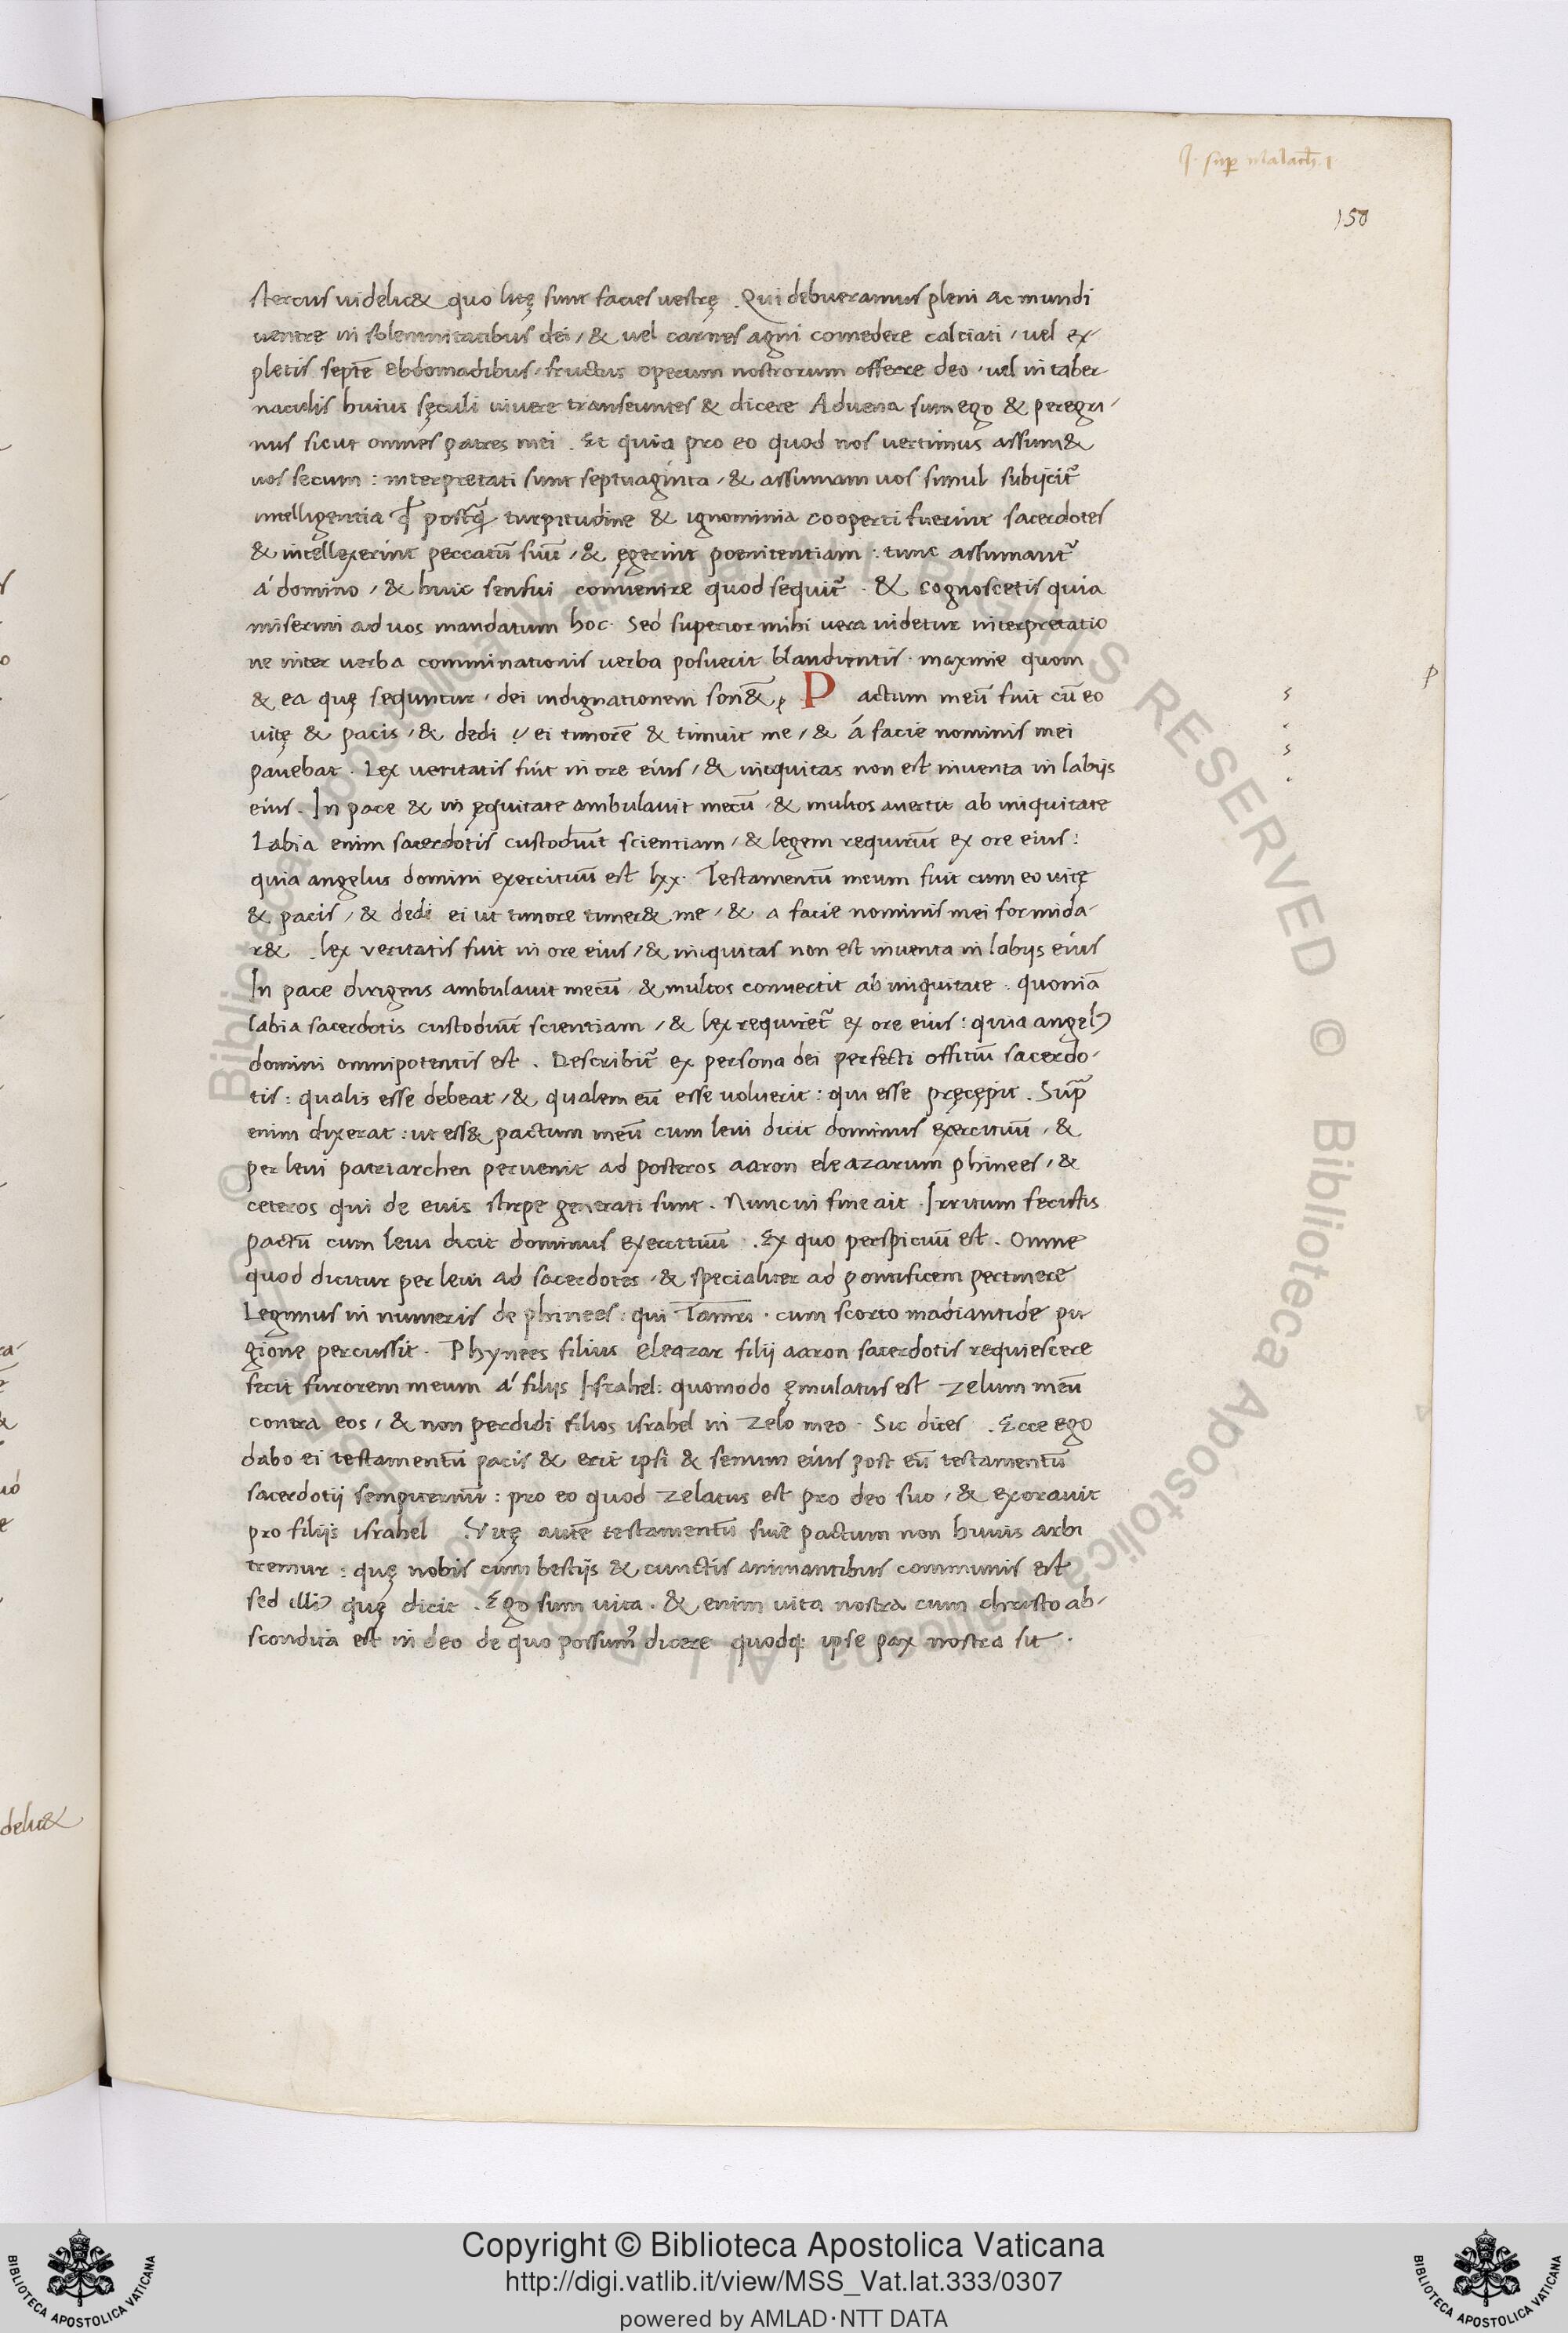 J. sup Malach. 1
150
stercus uidelic& quo litę sunt facies vestrę . Qui debueramus pleni ac mundi
uenire in solemnitatibus dei / & vel carnes agni comedere calciati / vel ex-
pletis septē ebdomadibus / fructus operum nostrorum offerre deo / vel in taber
naculis huius sęculi uiuere transeuntes & dicere Aduena sum ego & peregri-
nus sicut omnes patres mei . Et quia pro eo quod nos vertimus assum&
uos secum : interpretati sunt septuaginta / & assumam uos simul subijcit᷑
intelligentia qđ postq̄ turpitudine & ignominia cooperti fuerint sacerdotes
& intellexerint peccatū suū / & ęgerint poenitentiam : tunc assumant᷑
á domino / & huic sensui conuenire quod sequit᷑ . & cognoscetis quia
miserim ad uos mandatum hoc . Sed superior mihi uera uidetur interpretatio
ne inter verba comminationis verba posuerit blandientis . maxime quom
& ea quę sequntur / dei indignationem son&
P actum meū fuit cū eo
vitę & pacis / & dedi ei timorē & timuit me / & á facie nominis mei
pauebat . Lex veritatis fuit in ore eius / & iniquitas non est inuenta in labijs
eius . In pace & in ęquitate ambulauit mecū / & multos auertit ab iniquitate
Labia enim sacerdotis custodiūt scientiam / & legem requirūt ex ore eius :
quia angelus domini exercituū est lxx . Testamentū meum fuit cum eo vitę
& pacis / & dedi ei ut timore timer& me / & a facie nominis mei formida-
r& . lex veritatis fuit in ore eius / & iniquitas non est inuenta in labijs eius
In pace dirigens ambulauit mecū / & multos conuertit ab iniquitate . quoniā
labia sacerdotis custodiūt scientiam / & lex requiret᷑ ex ore eius : quia angelꝰ
domini omnipotentis est . Describit᷑ ex persona dei perfecti offitiū sacerdo-
tis : qualis esse debeat / & qualem eū esse uoluerit : qui esse pręcępit . Supᷓ
enim dixerat : ut ess& pactum meū cum leui dicit dominus exercituū / &
per leui patriarchen peruenit ad posteros aaron eleazarum phinees / &
ceteros qui de euis stirpe generati sunt . Nunc in fine ait . Irritum fecistis
pactū cum leui dicit dominus exercituū . Ex quo perspicuū est . Omne
quod dicitur per leui ad sacerdotes / & specialiter ad pontificem pertinere
Legimus in numeris de phinees : qui Tamri . cum scorto madiantide pu
gione percussit . Phynees filius eleazar filij aaron sacerdotis requiescere
fecit furorem meum á filijs Israhel : quomodo ęmulatus est zelum meū
contra eos / & non perdidi filios israhel in zelo meo . Sic dices . Ecce ego
dabo ei testamentū pacis & erit ipsi & semini eius post eū testamentū
sacerdotij sempiternū : pro eo quod zelatus est pro deo suo / & exorauit
pro filijs israhel . Vitę autē testamentū siue pactum non huius arbi
tremur : quę nobis cum bestijs & cunctis animantibus communis est
sed illiꝰ quę dicit . Ego sum uita . & enim uita nostra cum christo ab-
scondita est in deo de quo possumꝰ dicere quodq: ipse pax nostra sit .
s
.
s
.
p
delic&
Copyright © Biblioteca Apostolica Vaticana
http://digi.vatlib.it/view/MSS_Vat.lat.333/0307
powered by AMLAD·NTT DATA
BIBLIOTECA APOSTOLICA VATICANA
BIBLIOTECA APOSTOLICA VATICANA